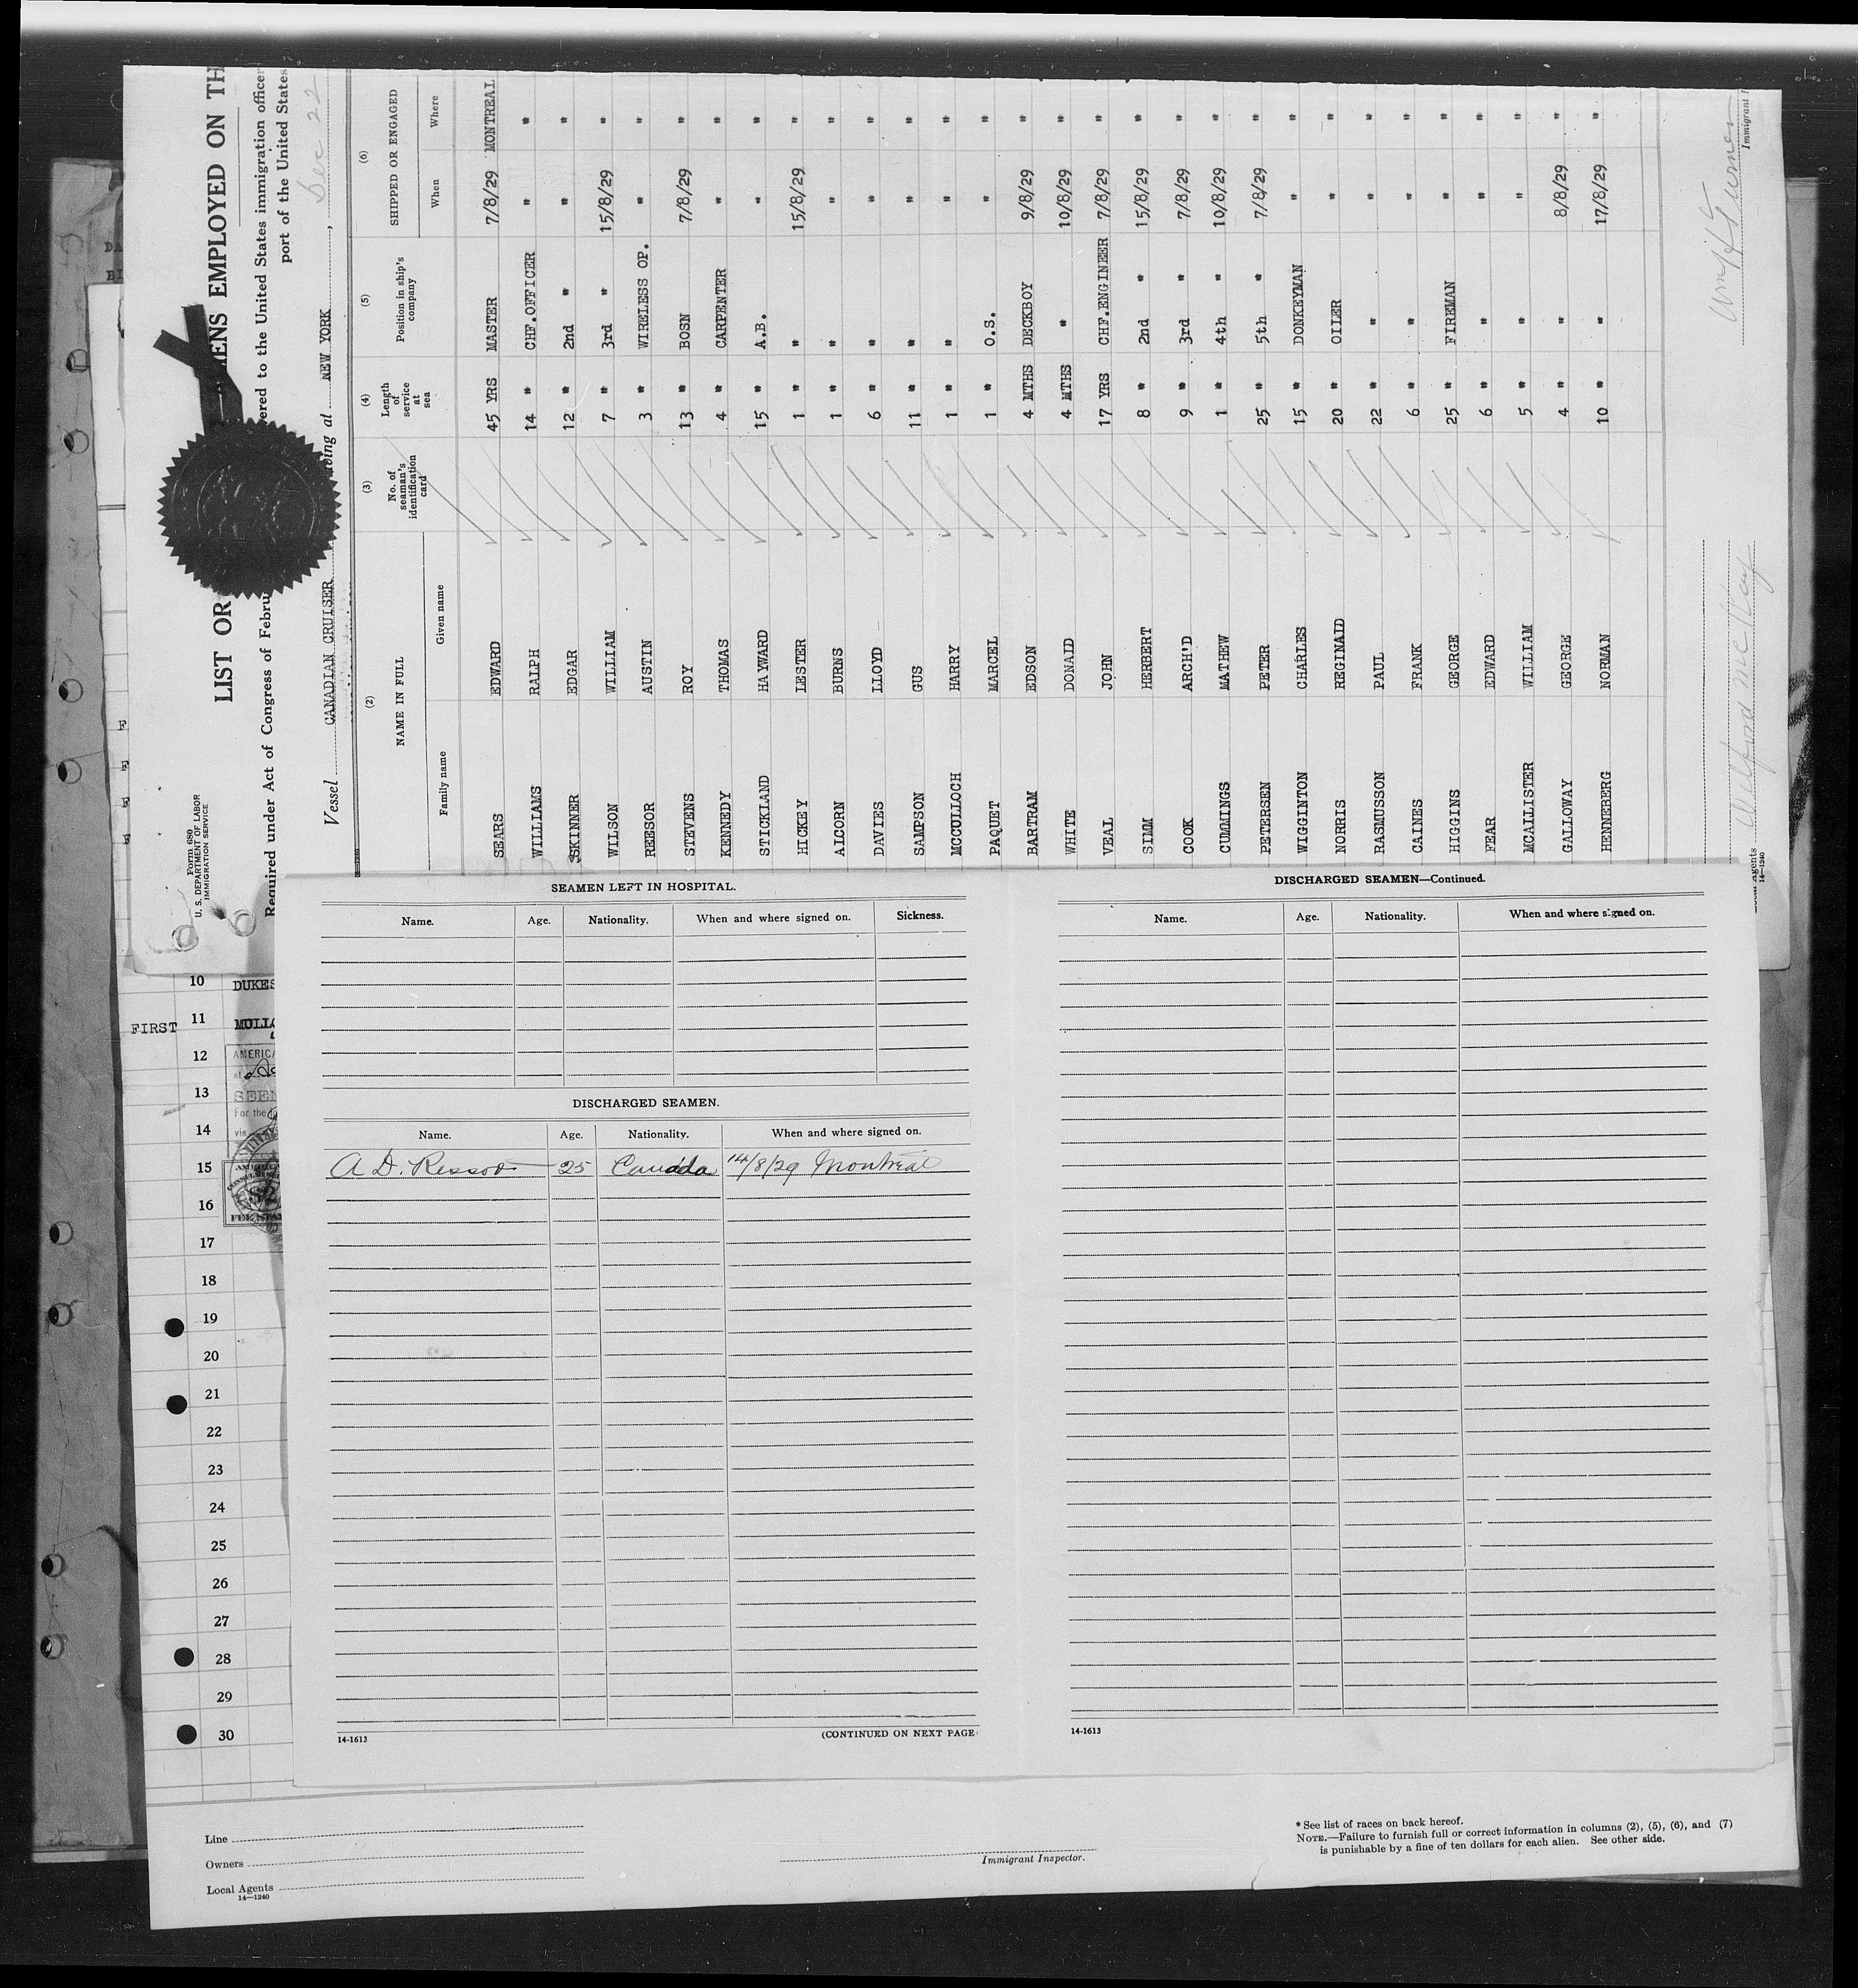 Form 680
U. S. DEPARTMENT OF LABOR
IMMIGRATION SERVICE
LIST OR ENS EMPLOYED ON TH
Required under Act of Congress of Febru ered to the United States immigration officer
port of the United States
Vessel CANADIAN CRUISER ving at NEW YORK, Dec 22
(2) (3) (4) (5) (6)
NAME IN FULL No. of seaman's identification card Length of service at sea Position in ship's company SHIPPED OR ENGAGED
Family name Given name When Where
SEARS EDWARD 45 YRS MASTER 7/8/29 MONTREAL
WILLIAMS RALPH 14 " CHF.OFFICER " "
SKINNER EDGAR 12 " 2nd " " "
WILSON WILLIAM 7 " 3rd " 15/8/29 "
REESOR AUSTIN 3 " WIRELESS OP. " "
STEVENS ROY 13 " BOSN 7/8/29 "
KENNEDY THOMAS 4 " CARPENTER " "
STICKLAND HAYWARD 15 " A.B. " "
HICKEY LESTER 1 " " 15/8/29 "
AICORN BURNS 1 " " " "
DAVIES LLOYD 6 " " " "
SAMPSON GUS 11 " " " "
MCCULLOCH HARRY 1 " " " "
PAQUET MARCEL 1 " O.S. " "
BARTRAM EDSON 4 MTHS DECKBOY 9/8/29 "
WHITE DONAID 4 MTHS " 10/8/29 "
VEAL JOHN 17 YRS CHF.ENGINEER 7/8/29 "
SIMM HERBERT 8 " 2nd " 15/8/29 "
COOK ARCH'D 9 " 3rd " 7/8/29 "
CUMMINGS MATHEW 1 " 4th " 10/8/29 "
PETERSEN PETER 25 " 5th " 7/8/29 "
WIGGINTON CHARLES 15 " DONKEYMAN " "
NORRIS REGINAID 20 " OILER " "
RASMUSSON PAUL 22 " " " "
CAINES FRANK 6 " " " "
HIGGINS GEORGE 25 " FIREMAN " "
FEAR EDWARD 6 " " " "
MCALLISTER WILLIAM 5 " " " "
GALLOWAY GEORGE 4 " " 8/8/29 "
HENNEBERG NORMAN 10 " " 17/8/29 "
Immigrant I
Local Agents
14—1240
F
F
F
F
SEAMEN LEFT IN HOSPITAL.
Name. Age. Nationality. When and where signed on. Sickness.
DISCHARGED SEAMEN.
Name. Age. Nationality. When and where signed on.
A D. Ressor 25 Canada 14/8/29 Montreal
14-1613 (CONTINUED ON NEXT PAGE
DISCHARGED SEAMEN—Continued.
Name. Age. Nationality. When and where signed on.
14-1613
10 DUKES
FIRST 11 MULLO
12 AMERICA
at
13 SEEN
For the
14 via
15
16
17
18
19
20
21
22
23
24
25
26
27
28
29
30
Line
Owners
Local Agents
14—1240
Immigrant Inspector.
* See list of races on back hereof.
NOTE.—Failure to furnish full or correct information in columns (2), (5), (6), and (7)
is punishable by a fine of ten dollars for each alien. See other side.